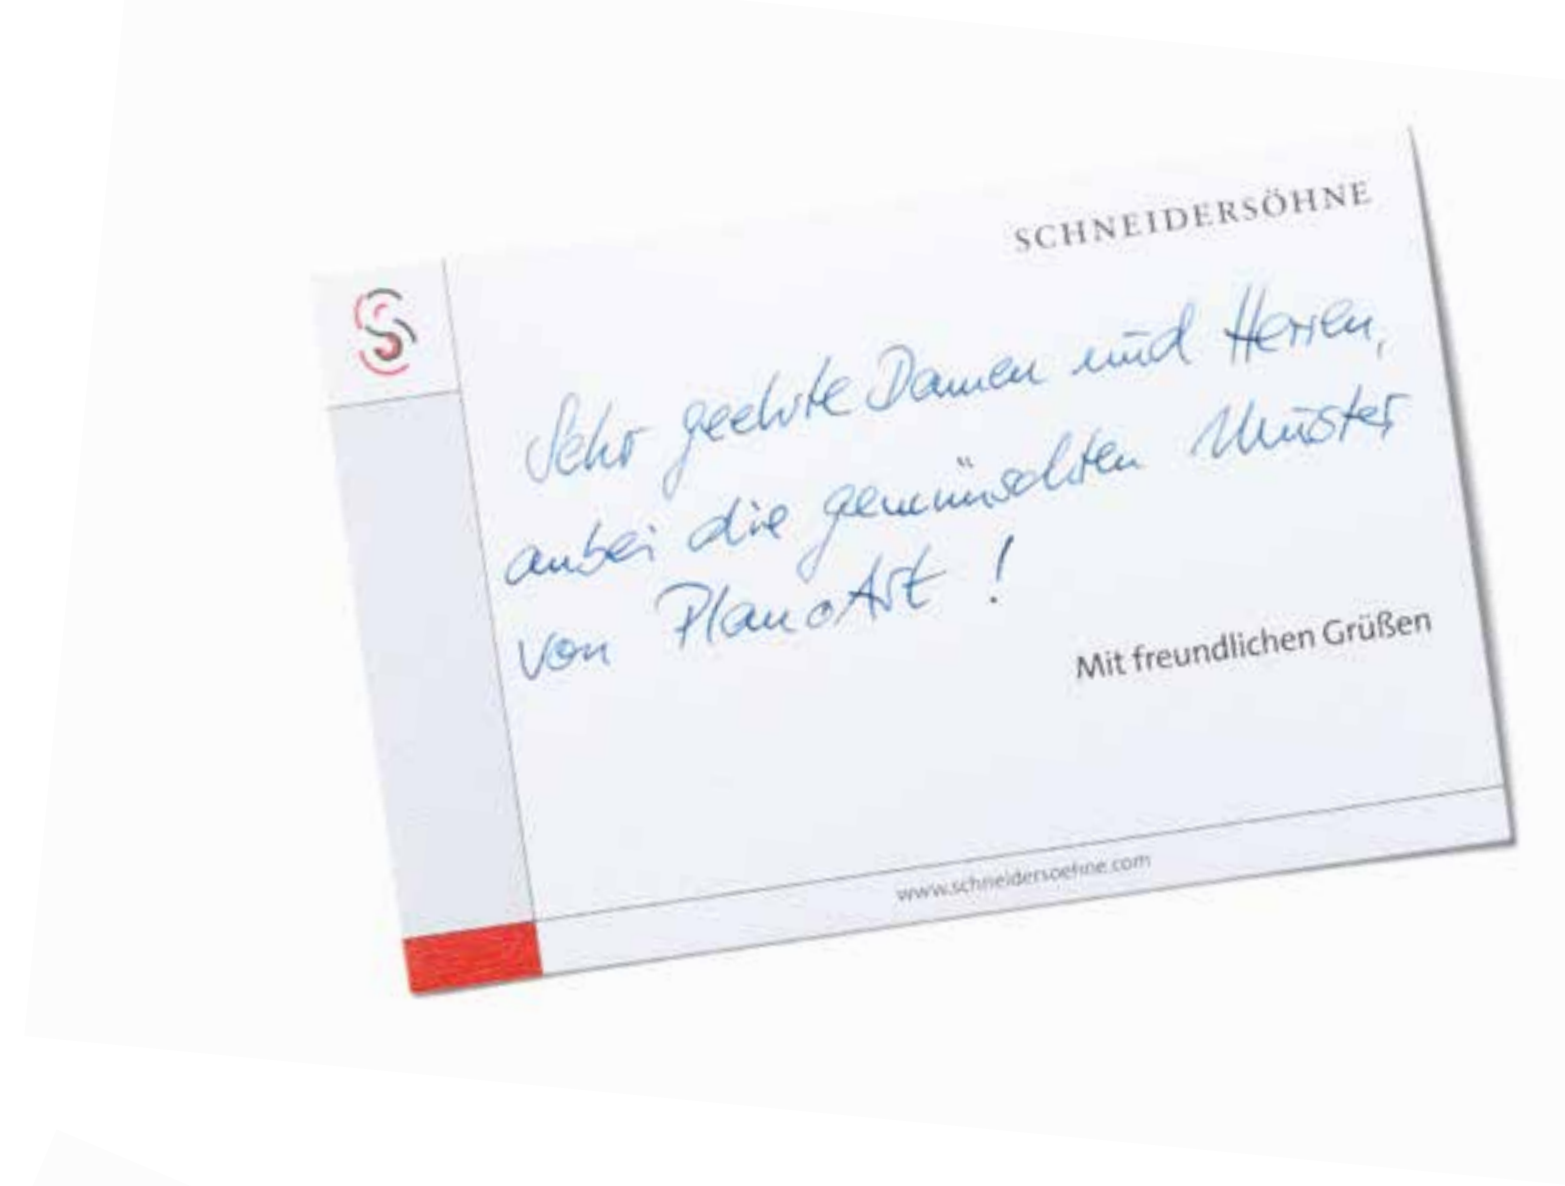 SCHNEIDERSÖHNE
Sehr geehrte Damen und Herren,
anbei die gewünschten Muster
von PlanoArt !
Mit freundlichen Grüßen
www.schneidersoehne.com